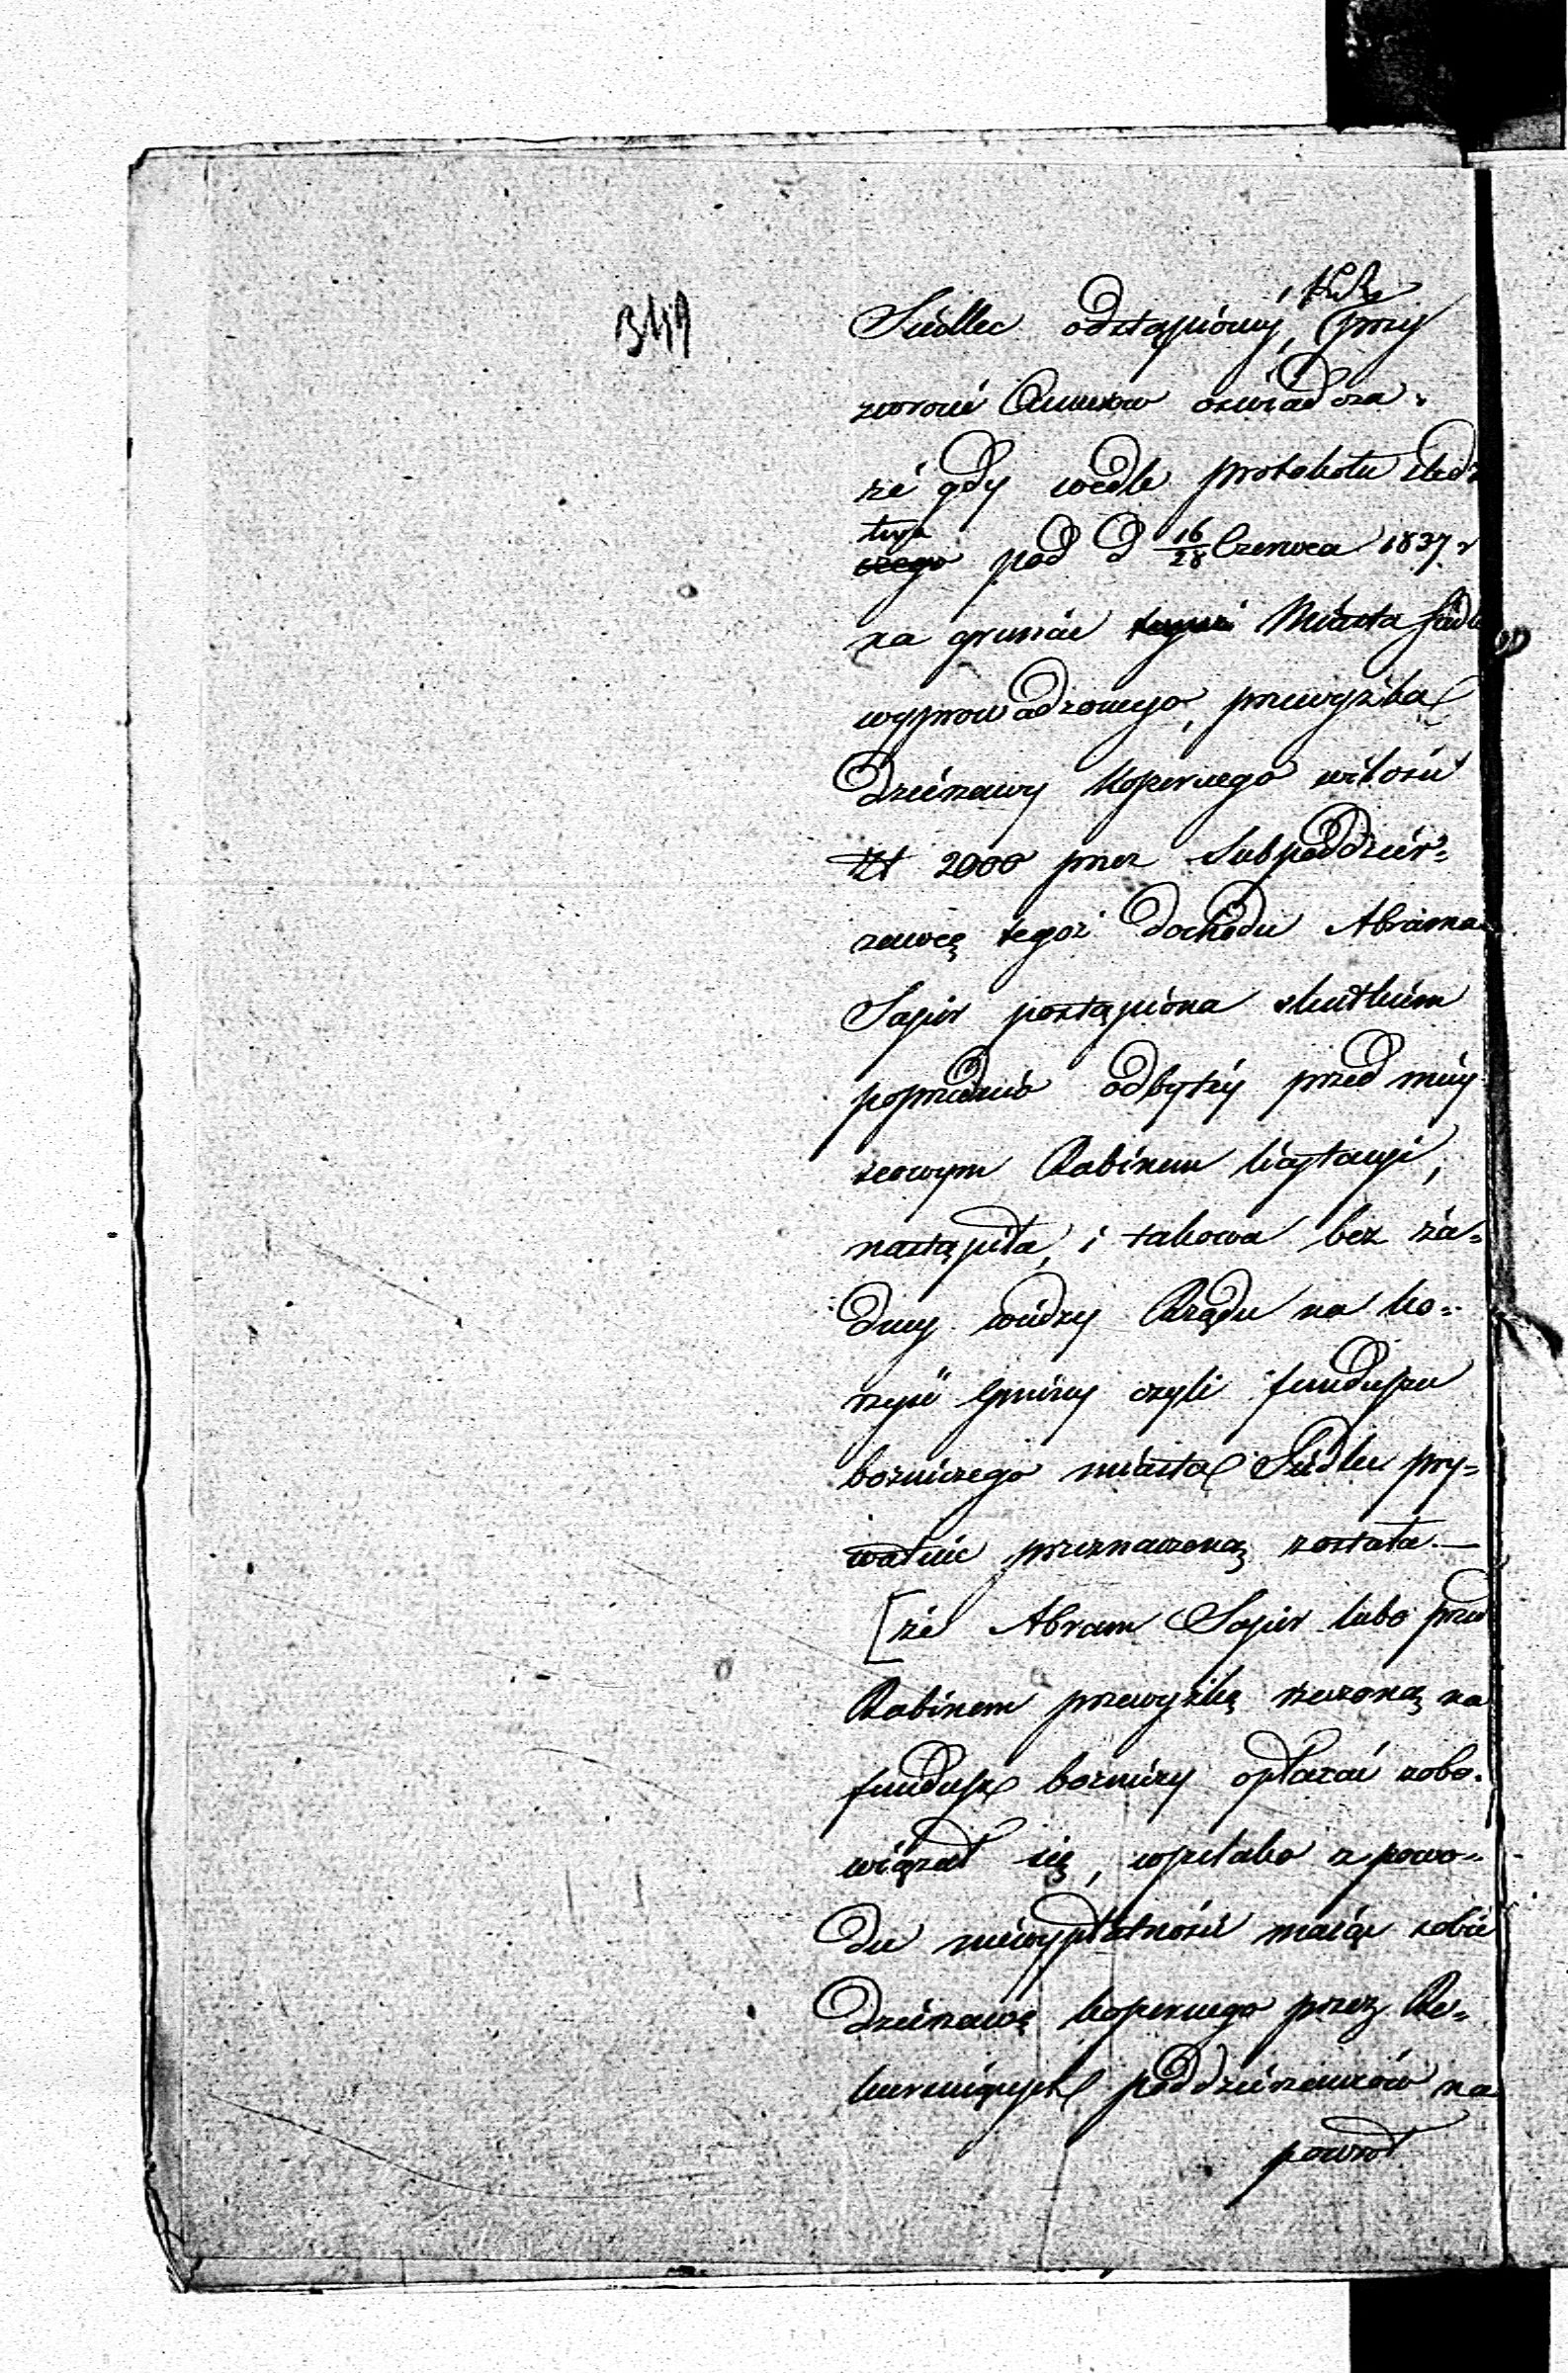 Siedlec odstąpiony, przy
zwrocie Annexów oświadcza,
że gdy wedle protokołu śledz
twa
pod d 16/28 Czerwca 1837 r
na gruncie Miasta Siedlec
wyprowadzonego, przewyżka
Dzierżawy koszernego w ilości
Zł 2000 przez Subpoddzier-
żawcę tegoż dochodu Abrama
Sapir postąpiona skutkiem
poprzednio odbytéj przed miéy
scowym Rabinem licytacyi,
nastąpiła, i takowa bez ża-
dnéy wiedzy Rządu na ko-
rzyść Gminy czyli funduszu
bożniczego miasta Siedlec pry-
watnie przeznaczoną została. —
[że Abram Sapir lubo przed
Rabinem przewyżkę rzeczoną na
fundusz bożniczy opłacać zobo-
wiązał się, wszelako z powo-
du niewypłatności maiąc sobie
Dzierżawę koszernego przez
poddzierżawców na
powrót